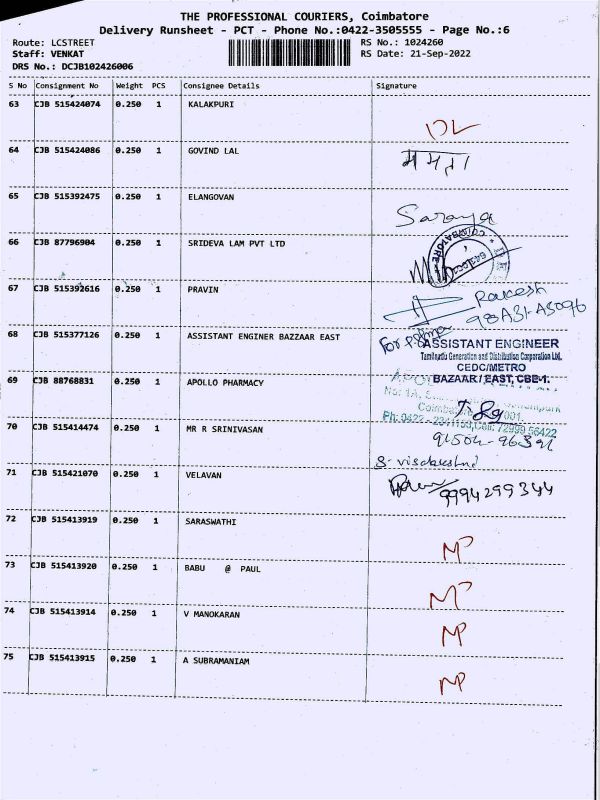 THE PROFESSIONAL COURIERS, Coimbatore
Delivery Runsheet - PCT - Phone No.:0422-3505555 - Page No.:6
Route: LCSTREET
RS No.: 1024260
Staff: VENKAT
RS Date: 21-Sep-2022
DRS No.: DCJB102426006
S No Consignment No Weight PCS Consignee Details Signature
63 CJB 515424074 0.250 1 KALAKPURI
DL
64 CJB 515424086 0.250 1 GOVIND LAL
ममता
65 CJB 515392475 0.250 1 ELANGOVAN
Saranya
66 CJB 87796904 0.250 1 SRIDEVA LAM PVT LTD
COIMBATORE
67 CJB 515392616 0.250 1 PRAVIN
Rakesh
68 CJB 515377126 0.250 1 ASSISTANT ENGINER BAZZAAR EAST
For
ASSISTANT ENGINEER
Tamilnadu Generation and Distribution Corporation Ltd.
CEDC/METRO
BAZAAR / EAST, CBE-1.
69 CJB 88768831 0.250 1 APOLLO PHARMACY
No: 1A,
Ph: 0422 - 2341153, Cell: 72999 56422
70 CJB 515414474 0.250 1 MR R SRINIVASAN
71 CJB 515421070 0.250 1 VELAVAN
9994299344
72 CJB 515413919 0.250 1 SARASWATHI
MP
73 CJB 515413920 0.250 1 BABU @ PAUL
MP
74 CJB 515413914 0.250 1 V MANOKARAN
MP
75 CJB 515413915 0.250 1 A SUBRAMANIAM
MP